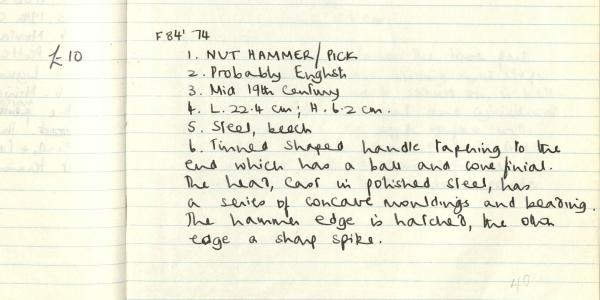 F84' 74
£-10
1. NUT HAMMER/PICK
2. Probably English
3. Mid 19th Century
4. L. 22.4 cm; H. 6.2 cm.
5. Steel, beech
6. Tinned shaped handle tapering to the
end which has a ball and cone finial.
The head, cast in polished steel, has
a series of concave mouldings and beading.
The hammer edge is hatched, the other
edge a sharp spike.
40